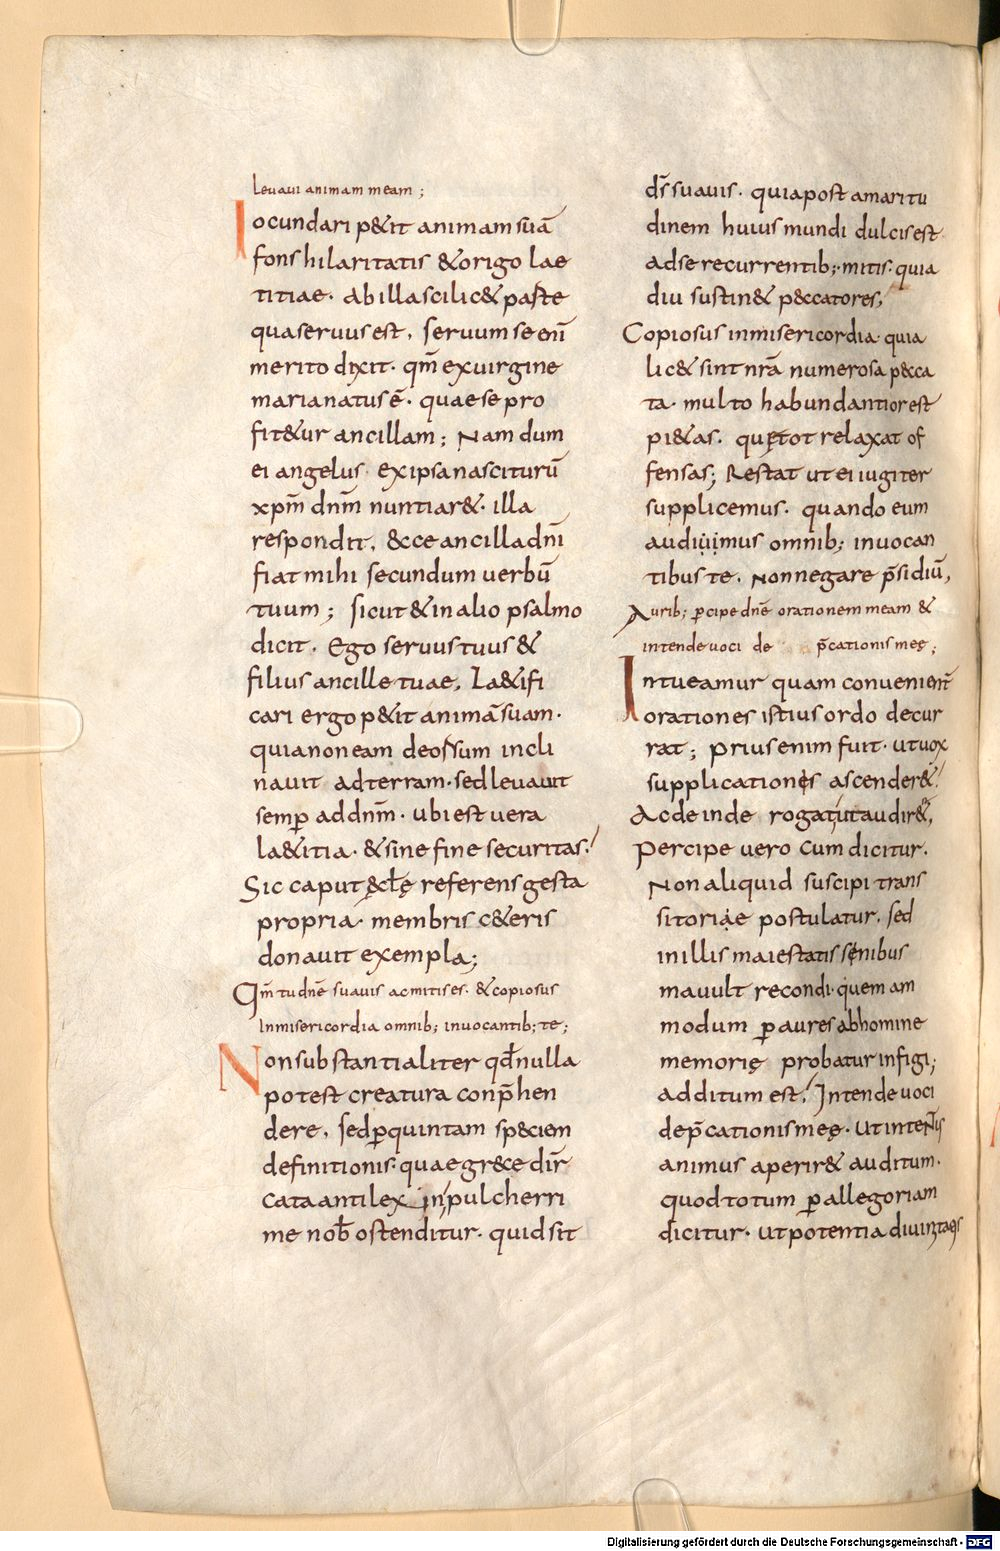 Levavi animam meam ;
Iocundari p&it animam suā
fons hilaritatis & origo lae
titiae. Ab illa scilic& parte
qua servus est, servum se eni
merito dixit. qm̄ ex virgine
maria natus ē. quae se pro
fit&ur ancillam ; Nam dum
ei angelus ex ipsa nasciturū
xpm̄ dnm̄ nuntiar&. illa
respondit, & cce ancilla dn̄i
fiat mihi secundum verbū
tuum ; sicut & in alio psalmo
dicit. Ego servus tuus &
filius ancille tuae, La&ifi
cari ergo p&it animā suam.
quia non eam deorsum incli
navit ad terram. sed levavit
semp̄ ad dnm̄. ubi est vera
la&itia. & sine fine securitas.
Sic caput ęcl̄ę referens gesta
propria. membris c&eris
donavit exempla;
Qm̄ tu dnē suavis ac mitis es. & copiosus
In misericordia omnib; invocantib; te;
Non substantialiter qd̄ nulla
potest creatura conp̄hen
dere, sed p̱ quintam speciem
definitionis. quae grece dir̄
cata antilexin, pulcherri
me nob̄ ostenditur. quid sit
ds̄ suavis. quia post amaritu
dinem huius mundi dulcis est
ad se recurrentib;. mitis. quia
diu sustin& p&ccatores,
Copiosus in misericordia. quia
lic& sint nr̄a numerosa pecca
ta. multo habundantior est
pi&as. quę tot relaxat of
fensas; Restat ut ei iugiter
supplicemus. quando eum
audivimus omnib; invocan
tibus te. Non negare p̄sidiū,
Aurib; p̱cipe dnē orationem meam &
intende voci de p̄cationis meę;
Intueamur quam convenient̄
orationes istius ordo decur
rat; Prius enim fuit. ut vox
supplicationis ascender&
Ac deinde rogat, ut audir&,
Percipe vero cum dicitur.
Non aliquid suscipi trans
sitoriae postulatur, sed
in illis maiestatis sensibus
mavult recondi. quem am
modum p̱ aures ab homine
memorię probatur infigi;
additum est, Intende voci
dep̄cationis meę. Ut intentus
animus aperir& auditum.
quod totum p̱ allegoriam
dicitur. Ut potentia divinitatis
Digitalisierung gefördert durch die Deutsche Forschungsgemeinschaft - DFG